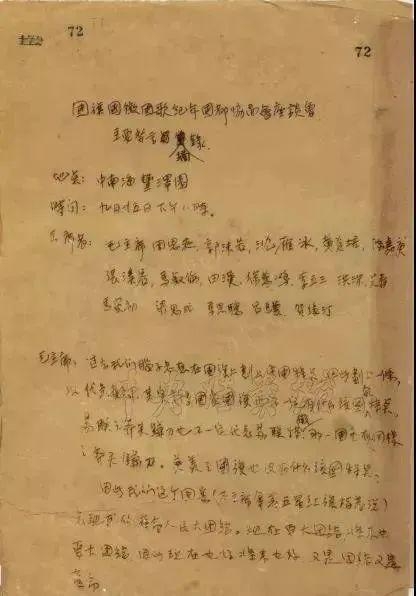 72
72
国旗国徽国歌纪年国都协商座谈会
主席
摘录
地点：中南海丰泽园
时间：九月廿五日下午八时。
出席者：毛主席 周恩来 郭沫若 沈雁冰 黄炎培 陈嘉庚
张奚若 马叙伦 田汉 徐悲鸿 李立三 洪深 艾青
马寅初 梁思成 马思聪 吕骥 贺绿汀
毛主席：过去我们脑子老想在国旗上划上中国特点，因此划上一条，
以代表黄河，其实许多国家国旗也不一定有什么该国特点。
苏联之斧头镰刀也不一定代表苏联特徵，那一国也有同样
之斧头镰刀。英美之国旗也没有什么该国特点。
因此我们这个图案（
）
表现革命人民大团结。现在要大团结，将来也
要大团结，因此现在也好将来也好，又是团结又是
革命